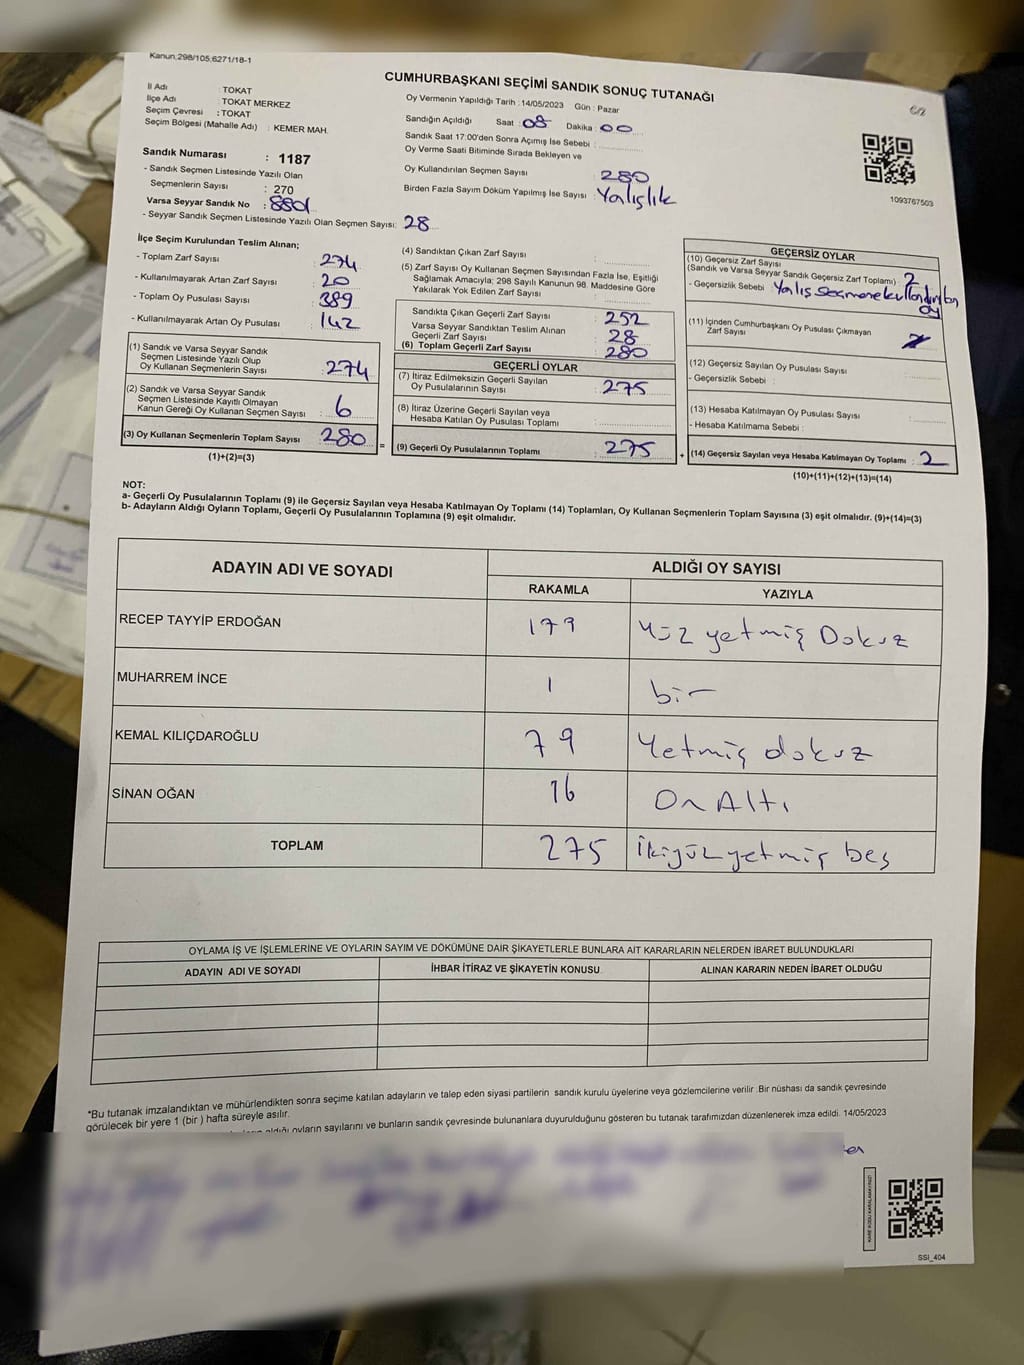 Kanun;298/105;6271/18-1
CUMHURBAŞKANI SEÇİMİ SANDIK SONUÇ TUTANAĞI
İl Adı : TOKAT
İlçe Adı : TOKAT MERKEZ
Seçim Çevresi : TOKAT
Seçim Bölgesi (Mahalle Adı) : KEMER MAH.
Oy Vermenin Yapıldığı Tarih :14/05/2023 Gün : Pazar
Sandığın Açıldığı Saat : 08 Dakika : 00
Sandık Saat 17:00'den Sonra Açımış İse Sebebi :
Oy Verme Saati Bitiminde Sırada Bekleyen ve
Oy Kullandırılan Seçmen Sayısı : 280
Birden Fazla Sayım Döküm Yapılmış İse Sayısı : Yalışlık
1093767503
Sandık Numarası : 1187
- Sandık Seçmen Listesinde Yazılı Olan
Seçmenlerin Sayısı : 270
Varsa Seyyar Sandık No :
- Seyyar Sandık Seçmen Listesinde Yazılı Olan Seçmen Sayısı: 28
İlçe Seçim Kurulundan Teslim Alınan;
- Toplam Zarf Sayısı : 274
- Kullanılmayarak Artan Zarf Sayısı : 20
- Toplam Oy Pusulası Sayısı : 389
- Kullanılmayarak Artan Oy Pusulası : 142
(1) Sandık ve Varsa Seyyar Sandık
Seçmen Listesinde Yazılı Olup
Oy Kullanan Seçmenlerin Sayısı : 274
(2) Sandık ve Varsa Seyyar Sandık
Seçmen Listesinde Kayıtlı Olmayan
Kanun Gereği Oy Kullanan Seçmen Sayısı : 6
(3) Oy Kullanan Seçmenlerin Toplam Sayısı : 280
(1)+(2)=(3)
(4) Sandıktan Çıkan Zarf Sayısı :
(5) Zarf Sayısı Oy Kullanan Seçmen Sayısından Fazla İse, Eşitliği
Sağlamak Amacıyla; 298 Sayılı Kanunun 98. Maddesine Göre
Yakılarak Yok Edilen Zarf Sayısı :
Sandıkta Çıkan Geçerli Zarf Sayısı : 252
Varsa Seyyar Sandıktan Teslim Alınan
Geçerli Zarf Sayısı : 28
(6) Toplam Geçerli Zarf Sayısı : 280
GEÇERLİ OYLAR
(7) İtiraz Edilmeksizin Geçerli Sayılan
Oy Pusulalarının Sayısı : 275
(8) İtiraz Üzerine Geçerli Sayılan veya
Hesaba Katılan Oy Pusulası Toplamı :
(9) Geçerli Oy Pusulalarının Toplamı : 275
GEÇERSİZ OYLAR
(10) Geçersiz Zarf Sayısı
(Sandık ve Varsa Seyyar Sandık Geçersiz Zarf Toplamı) : 2
- Geçersizlik Sebebi : Yanlış seçmene kullandırılan
oy
(11) İçinden Cumhurbaşkanı Oy Pusulası Çıkmayan
Zarf Sayısı :
(12) Geçersiz Sayılan Oy Pusulası Sayısı :
- Geçersizlik Sebebi :
(13) Hesaba Katılmayan Oy Pusulası Sayısı :
- Hesaba Katılmama Sebebi :
(14) Geçersiz Sayılan veya Hesaba Katılmayan Oy Toplamı : 2
(10)+(11)+(12)+(13)=(14)
NOT:
a- Geçerli Oy Pusulalarının Toplamı (9) ile Geçersiz Sayılan veya Hesaba Katılmayan Oy Toplamı (14) Toplamları, Oy Kullanan Seçmenlerin Toplam Sayısına (3) eşit olmalıdır. (9)+(14)=(3)
b- Adayların Aldığı Oyların Toplamı, Geçerli Oy Pusulalarının Toplamına (9) eşit olmalıdır.
ADAYIN ADI VE SOYADI ALDIĞI OY SAYISI
RAKAMLA YAZIYLA
RECEP TAYYİP ERDOĞAN 179 Yüz yetmiş Dokuz
MUHARREM İNCE 1 bir
KEMAL KILIÇDAROĞLU 79 Yetmiş dokuz
SİNAN OĞAN 16 On Altı
TOPLAM 275 İkiyüz yetmiş beş
OYLAMA İŞ VE İŞLEMLERİNE VE OYLARIN SAYIM VE DÖKÜMÜNE DAİR ŞİKAYETLERLE BUNLARA AİT KARARLARIN NELERDEN İBARET BULUNDUKLARI
ADAYIN ADI VE SOYADI İHBAR İTİRAZ VE ŞİKAYETİN KONUSU ALINAN KARARIN NEDEN İBARET OLDUĞU
*Bu tutanak imzalandıktan ve mühürlendikten sonra seçime katılan adayların ve talep eden siyasi partilerin sandık kurulu üyelerine veya gözlemcilerine verilir .Bir nüshası da sandık çevresinde
görülecek bir yere 1 (bir ) hafta süreyle asılır.
aldığı oyların sayılarını ve bunların sandık çevresinde bulunanlara duyurulduğunu gösteren bu tutanak tarafımızdan düzenlenerek imza edildi. 14/05/2023
KARE KODU KARALAMAYINIZ!
SSI_404